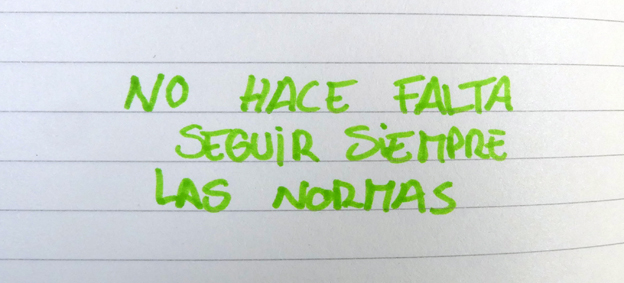 NO HACE FALTA
SEGUIR SIEMPRE
LAS NORMAS